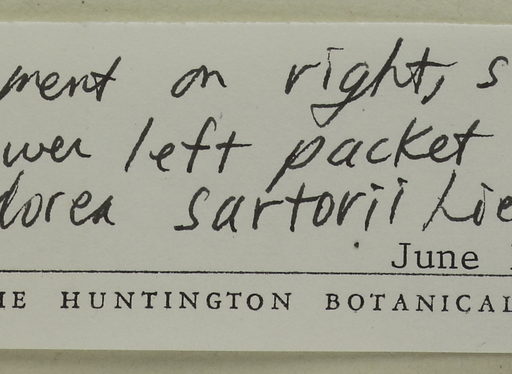 ment on right, s
wer left packet
dorea sartorii Lie
June
HE HUNTINGTON BOTANICAL